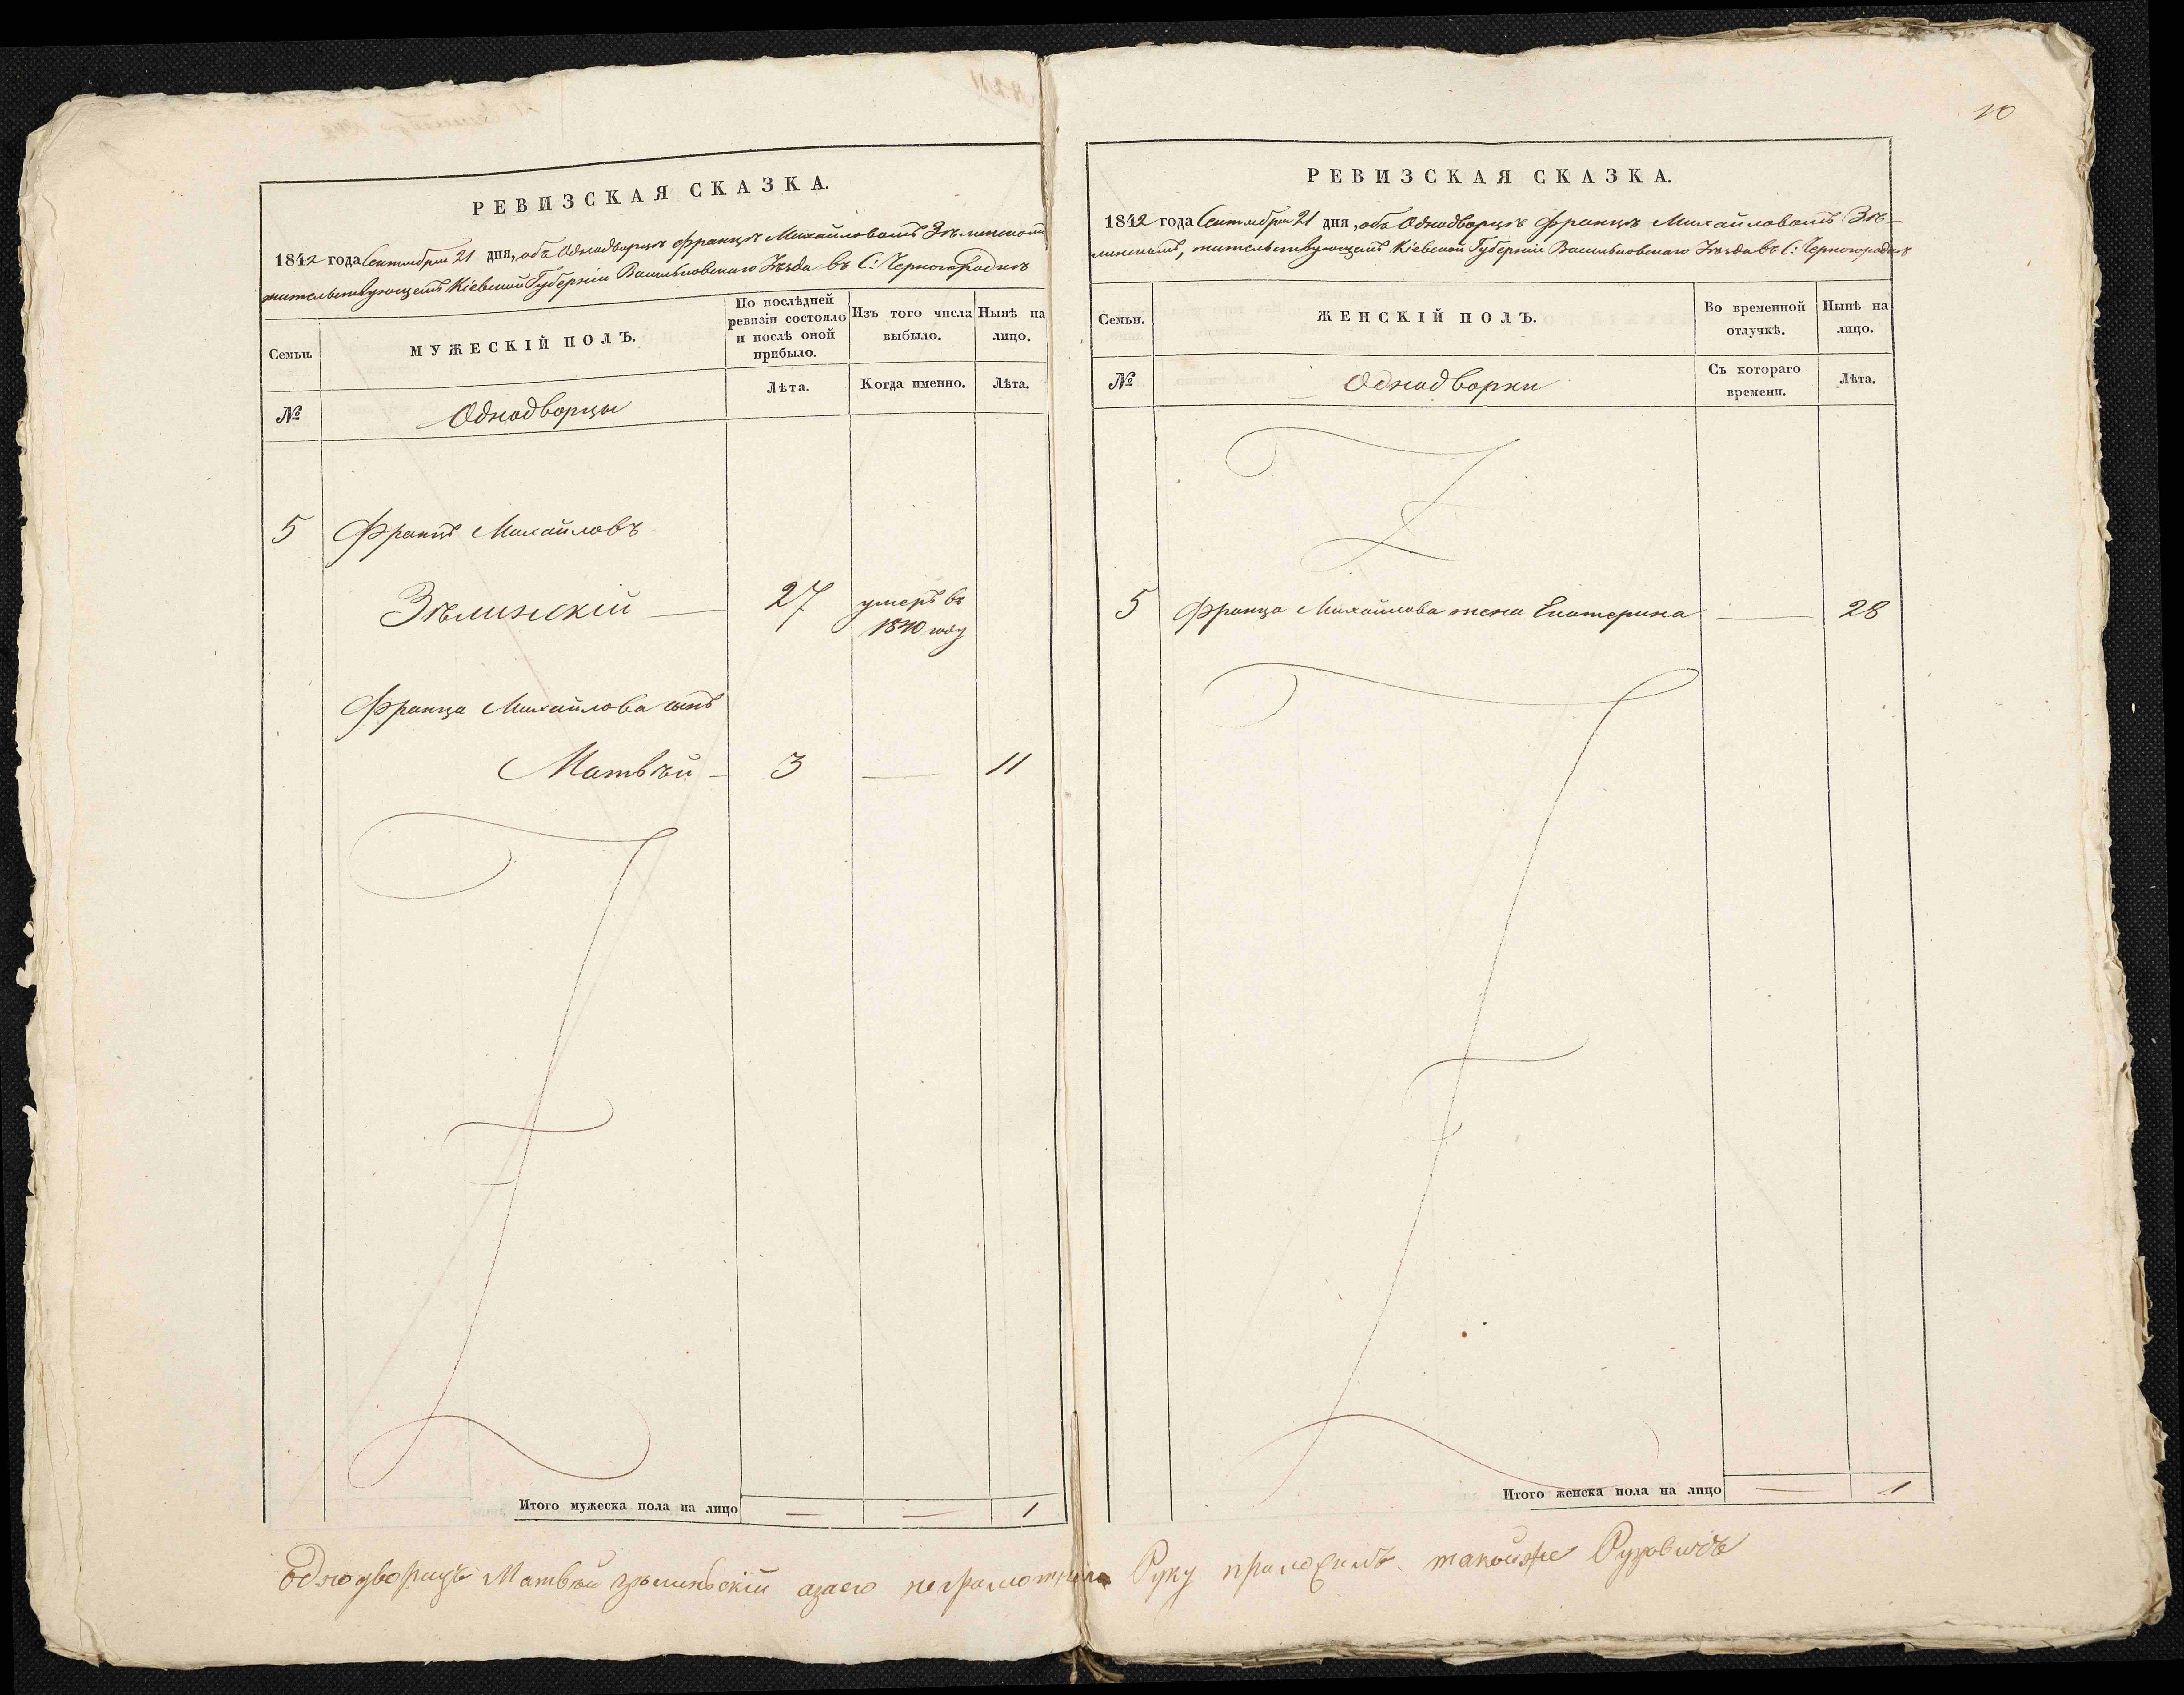 РЕВИЗСКАЯ СКАЗКА.
1842 года Сентября 21 дня, объ Однодворцѣ Францѣ Михайловомъ Зѣлинскомъ
жительствующемъ Кіевской Губерніи Васильковскаго Уѣзда въ С: Черногородкѣ
Семьи.
МУЖЕСКІЙ ПОЛЪ.
По послѣдней
ревизіи состояло
и послѣ оной
прибыло.
Изъ того числа
выбыло.
Нынѣ на
лицо.
№
Однодворцы
Лѣта.
Когда именно.
Лѣта.
5 Францъ Михайловъ
Зѣлинскій — 27 умеръ въ
1840 году
Франца Михайлова сынъ
Матвѣй — 3 — 11
Итого мужеска пола на лицо — — 1
10
РЕВИЗСКАЯ СКАЗКА.
1842 года Сентября 21 дня, объ Однодворцѣ Францѣ Михайловомъ Зѣ-
линскомъ, жительствующемъ Кіевской Губерніи Васильковскаго Уѣзда въ С: Черногородкѣ
Семьи.
ЖЕНСКІЙ ПОЛЪ.
Во временной
отлучкѣ.
Нынѣ на
лицо.
№
Однодворки
Съ котораго
времени.
Лѣта.
5 Франца Михайлова жена Екатерина — 28
Итого женска пола на лицо — 1
Однодворицъ Матвѣй зѣлиньскій азаего неграмотнаго Руку приложилъ такойже